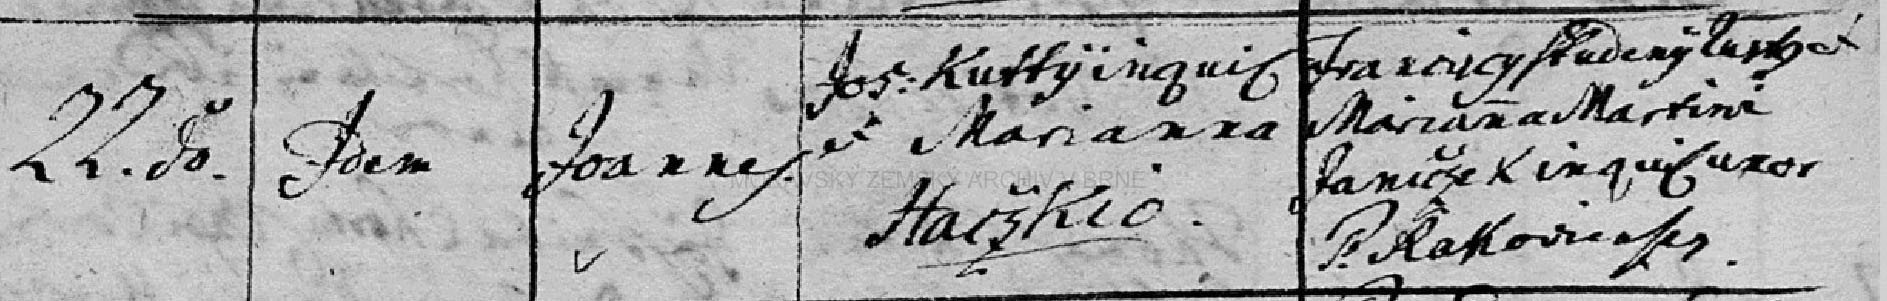 22. do. Idem Joannes.
Jos: Kutty inquil
et Marianna
Franciscy Studený et
Marianna Martini
Janiczek inquil uxor
P. Rakovienses.
MORAVSKÝ ZEMSKÝ ARCHIV V BRNĚ